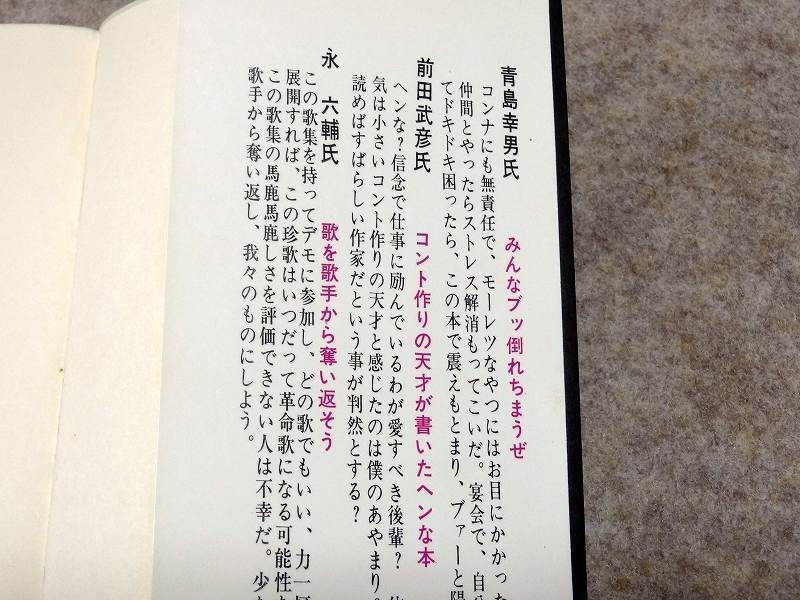 青島幸男氏
みんなブッ倒れちまうぜ
コンナにも無責任で、モーレツなやつにはお目にかかった
仲間とやったらストレス解消もってこいだ。宴会で、自
てドキドキ困ったら、この本で震えもとまり、ブァーと陽
前田武彦氏
コント作りの天才が書いたヘンな本
ヘンな?信念で仕事に励んでいるわが愛すべき後輩?
気は小さいコント作りの天才と感じたのは僕のあやまり。
読めばすばらしい作家だという事が判然とする?
永 六輔氏
歌を歌手から奪い返そう
この歌集を持ってデモに参加し、どの歌でもいい、力一
展開すれば、この珍歌はいつだって革命歌になる可能性
この歌集の馬鹿馬鹿しさを評価できない人は不幸だ。少
歌手から奪い返し、我々のものにしよう。